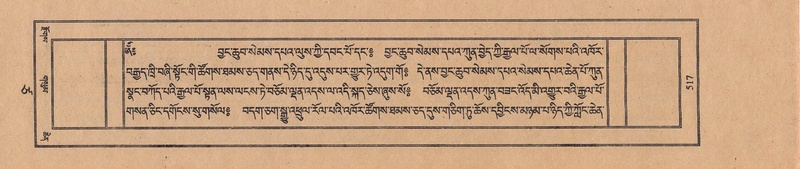 ༄༅༅། །བྱང་ཆུབ་སེམས་དཔའ་ལུས་ཀྱི་དབང་པོ་དང་༔ བྱང་ཆུབ་སེམས་དཔའ་ཀུན་བྱེད་ཀྱི་རྒྱལ་པོ་ལ་སོགས་པའི་འཁོར་
བརྒྱད་ཁྲི་བཞི་སྟོང་གི་ཚོགས་ཐམས་ཅད་གནས་དེ་ཉིད་དུ་འདུས་པར་གྱུར་ཏེ་འདུག་གོ༔ དེ་ནས་བྱང་ཆུབ་སེམས་དཔའ་སེམས་དཔའ་ཆེན་པོ་ཀུན་
སྣང་བཀོད་པའི་རྒྱལ་པོ་སྟན་ལས་ལངས་ཏེ་བཅོམ་ལྡན་འདས་ལ་འདི་སྐད་ཅེས་ཞུས་སོ༔ བཅོམ་ལྡན་འདས་ཀུན་བཟང་འོད་མི་འགྱུར་བའི་རྒྱལ་པོ་
གསན་ཅིང་དགོངས་སུ་གསོལ༔ བདག་ཅག་སྒྱུ་འཕྲུལ་རོལ་པའི་འཁོར་ཚོགས་ཐམས་ཅད་དུས་གཅིག་ཏུ་ཆོས་དབྱིངས་མཉམ་པ་ཉིད་ཀྱི་ཀློང་ཆེན་
517